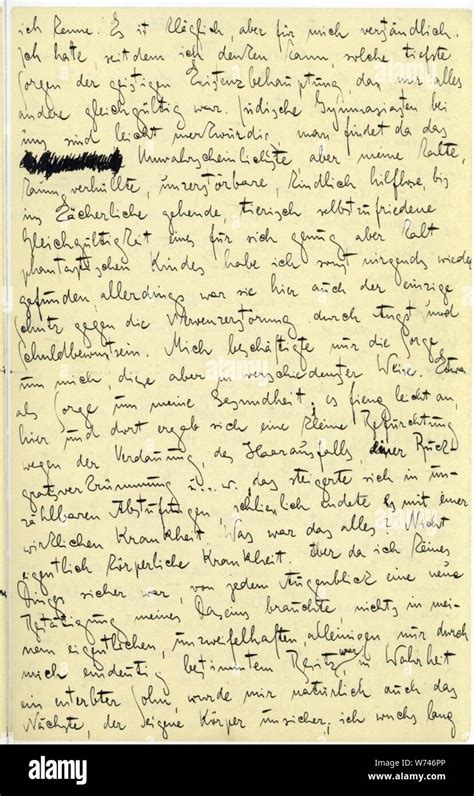 ich kenne. Es ist kläglich, aber für mich verständlich.
Ich hatte, seitdem ich denken kann, solche tiefste
Sorgen der geistigen Existenzbehauptung, das mir alles
andere gleichgültig war. Jüdische Gymnasiasten bei
uns sind leicht merkwürdig, man findet da das
Unwahrscheinlichste, aber meine kalte,
kaum verhüllte, unzerstörbare, kindlich hilflose, bis
ins Lächerliche gehende, tierisch selbstzufriedene
Gleichgültigkeit eines für sich genug aber kalt
phantastischen Kindes habe ich sonst nirgends wieder
gefunden, allerdings war sie hier auch der einzige
Schutz gegen die Nervenzerstörung durch Angst und
Schuldbewusstsein. Mich beschäftigte nur die Sorge
um mich, diese aber in verschiedenster Weise. Etwa
als Sorge um meine Gesundheit; es fieng leicht an,
hier und dort ergab sich eine kleine Befürchtung
wegen der Verdauung, des Haarausfalls, einer Rück-
gratsverkrümmung u.s.w., das steigerte sich in un-
zählbaren Abstufungen, schliesslich endete es mit einer
wirklichen Krankheit. Was war das alles? Nicht
eigentlich körperliche Krankheit. Aber da ich keines
Dinges sicher war, von jedem Augenblick eine neue
Bestätigung meines Daseins brauchte, nichts in mei-
nem eigentlichen, unzweifelhaften, alleinigen, nur durch
mich eindeutig bestimmten Besitz war, in Wahrheit
ein enterbter Sohn, wurde mir natürlich auch das
Nächste, der eigene Körper unsicher; ich wuchs lang
alamy
alamy
Image ID: W746PP
www.alamy.com